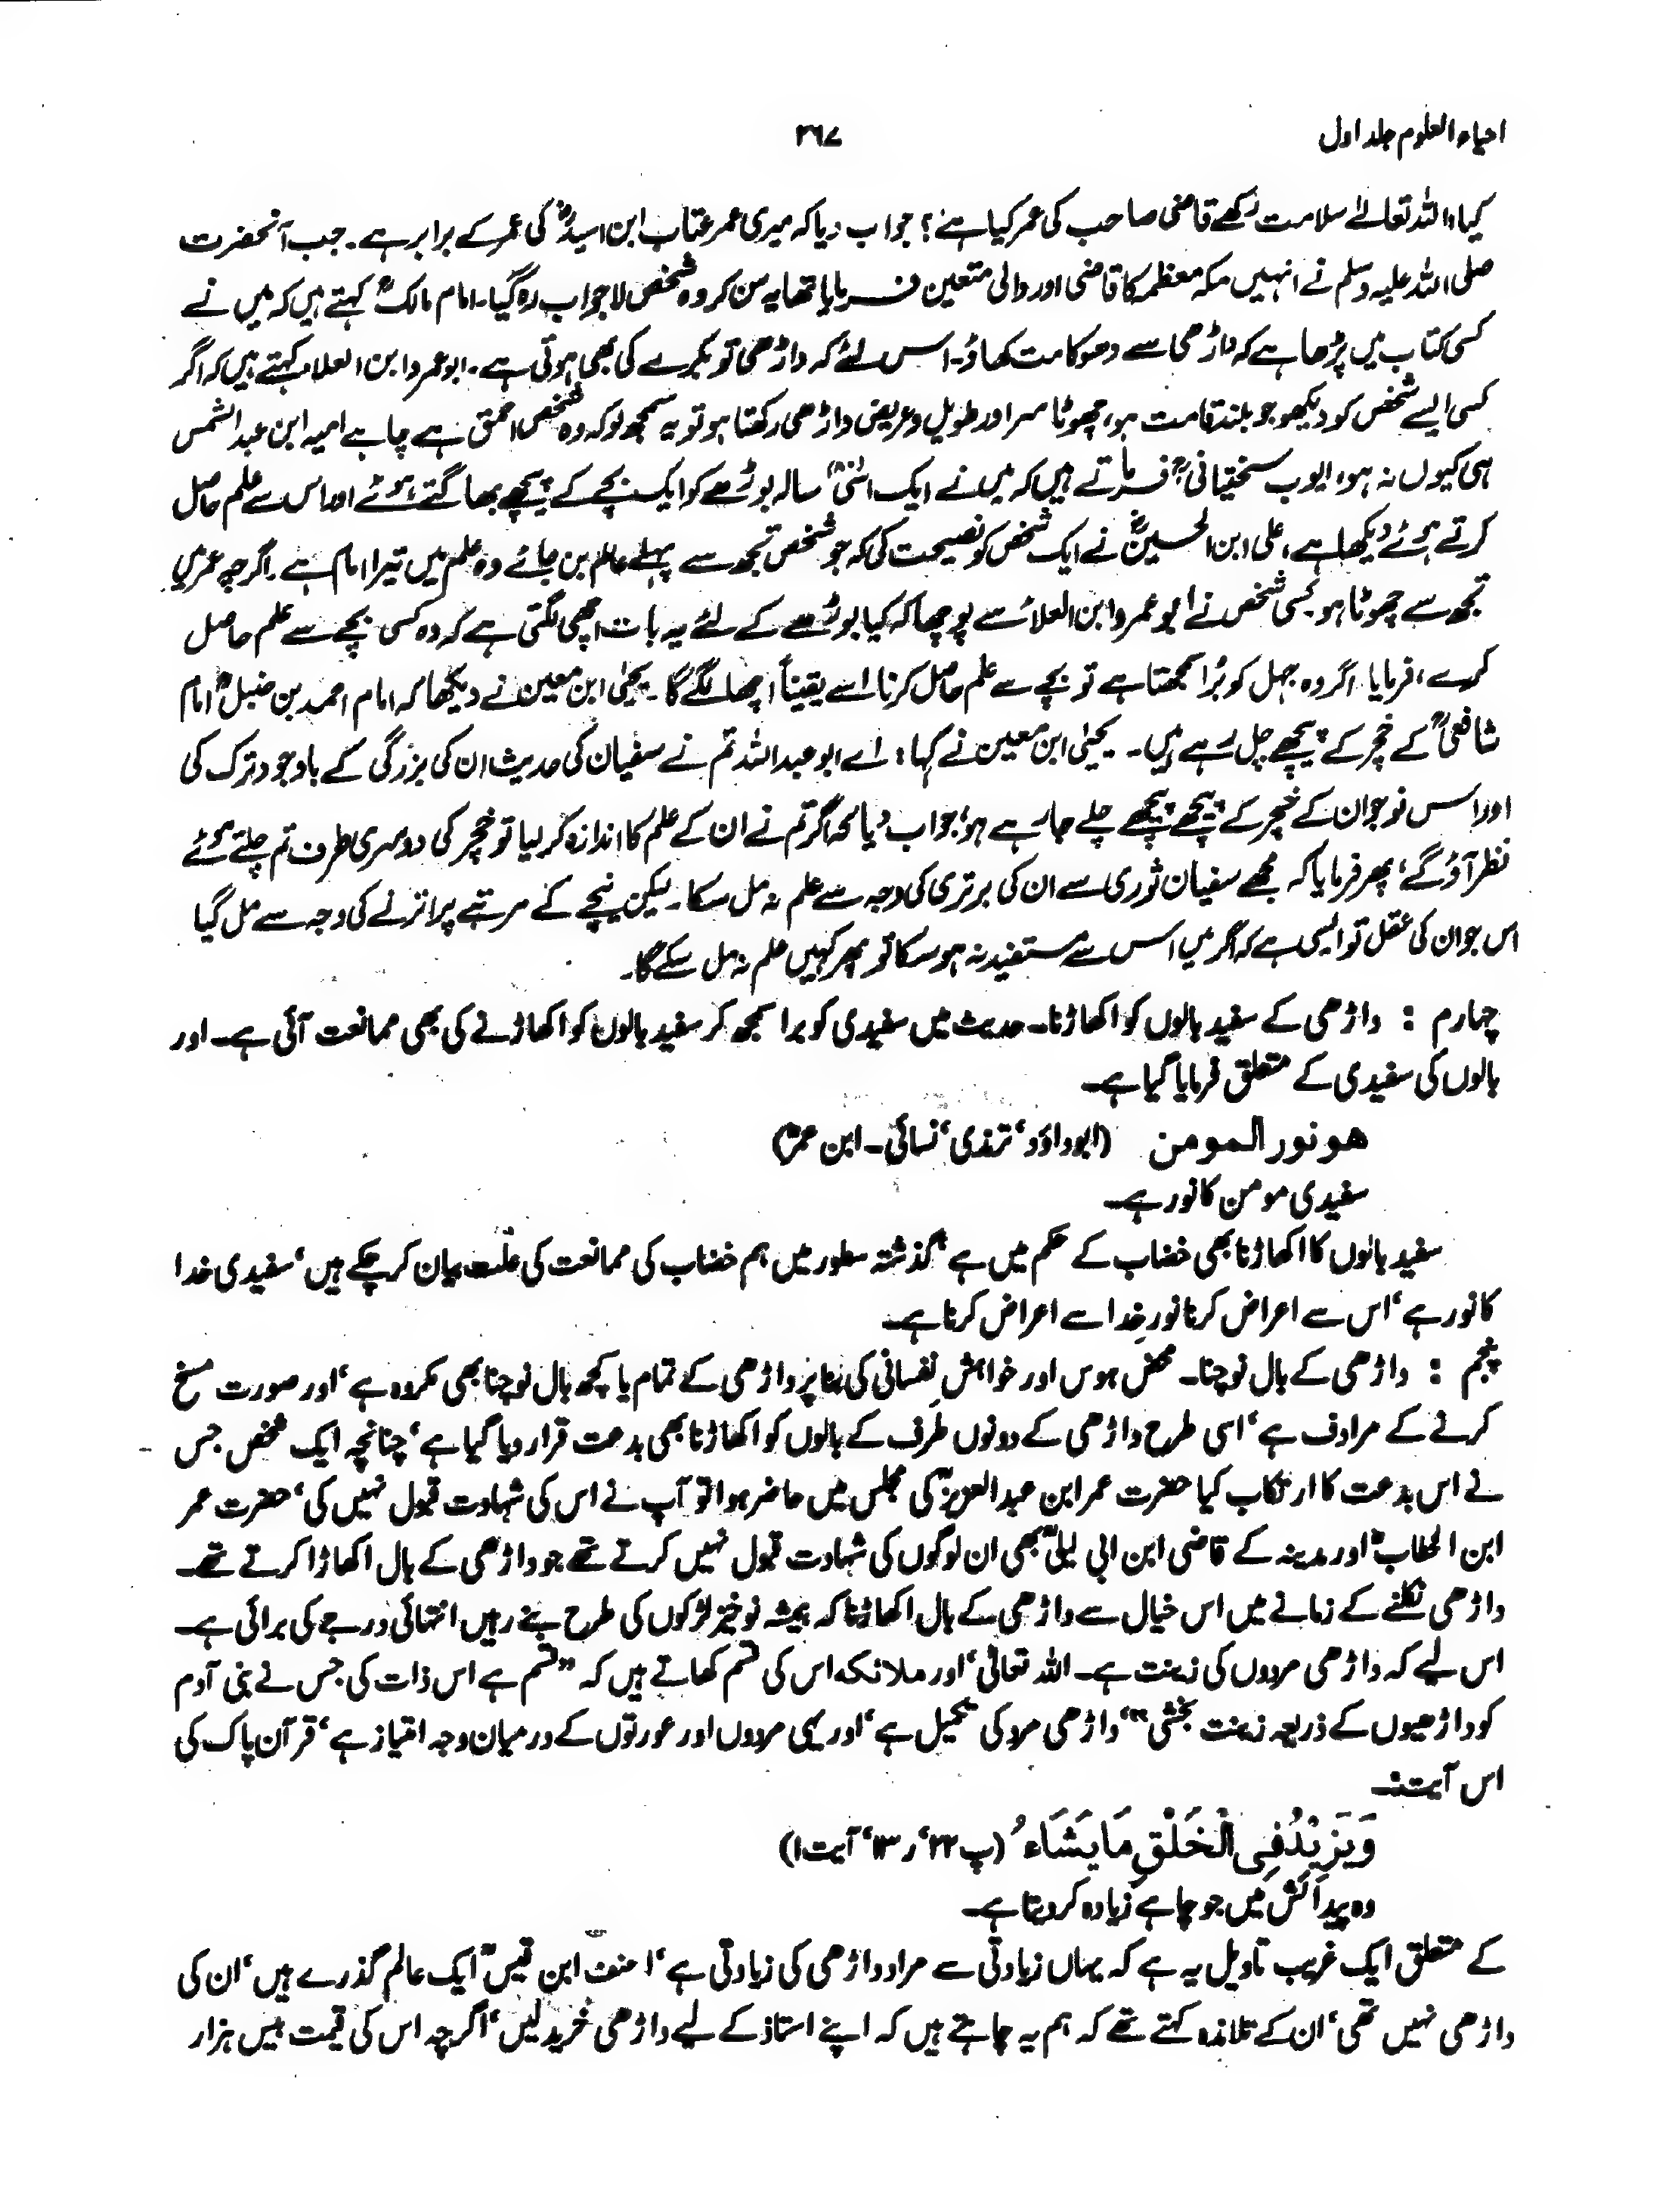 احیاء العلوم جلد اول
۳۶۷
کیا، اللہ تعالےٰ سلامت رکھے قاضی صاحب کی عمر کیا ہے؟ جواب دیا کہ میری عمر عتاب ابن اسیدؓ کی عمر کے برابر ہے۔ جب آنحضرت
صلی اللہ علیہ وسلم نے انہیں مکہ معظمہ کا قاضی اور والی متعین فرمایا تھا یہ سن کر وہ شخص لاجواب رہ گیا۔ امام مالکؒ کہتے ہیں کہ میں نے
کسی کتاب میں پڑھا ہے کہ داڑھی سے دھوکا مت کھاؤ۔ اس لئے کہ داڑھی تو بکرے کی بھی ہوتی ہے۔ ابو عمرو ابن العلاء کہتے ہیں کہ اگر
کسی ایسے شخص کو دیکھو جو بلند قامت ہو، چھوٹا سر اور طویل و عریض داڑھی رکھتا ہو تو یہ سمجھ لو کہ وہ شخص احمق ہے چاہے امیہ ابن عبد الشمس
ہی کیوں نہ ہو، ایوب سختیانیؒ فرماتے ہیں کہ میں نے ایک اسّی سالہ بوڑھے کو ایک بچے کے پیچھے بھاگتے ہوئے اور اس سے علم حاصل
کرتے ہوئے دیکھا ہے، علی ابن الحسینؓ نے ایک شخص کو نصیحت کی کہ جو شخص تجھ سے پہلے عالم بن جائے وہ علم میں تیرا امام ہے۔ اگرچہ عمر میں
تجھ سے چھوٹا ہو کسی شخص نے ابو عمرو ابن العلاء سے پوچھا کہ کیا بوڑھے کے لئے یہ بات اچھی لگتی ہے کہ وہ کسی بچے سے علم حاصل
کرے، فرمایا اگر وہ جہل کو برا سمجھتا ہے تو بچے سے علم حاصل کرنا اسے یقیناً اچھا لگے گا۔ یحییٰ ابن معین نے دیکھا کہ امام احمد بن حنبلؒ امام
شافعیؒ کے خچر کے پیچھے چل رہے ہیں۔ یحییٰ ابن معین نے کہا: اے ابو عبداللہ تم نے سفیان کی حدیث ان کی بزرگی کے باوجود ترک کی
اور اس نوجوان کے خچر کے پیچھے پیچھے چلے جا رہے ہو؛ جواب دیا کہ اگر تم نے ان کے علم کا اندازہ کر لیا تو خچر کی دوسری طرف تم چلتے ہوئے
نظر آؤ گے؛ پھر فرمایا کہ مجھے سفیان ثوری سے ان کی برتری کی وجہ سے علم نہ مل سکا۔ لیکن نیچے کے مرتبے پر اترنے کی وجہ سے مل گیا
اس جوان کی عقل تو ایسی ہے کہ اگر میں اس سے مستفید نہ ہو سکا تو پھر کہیں علم نہ مل سکے گا۔
چہارم : داڑھی کے سفید بالوں کو اکھاڑنا۔ حدیث میں سفیدی کو برا سمجھ کر سفید بالوں کو اکھاڑنے کی بھی ممانعت آئی ہے۔ اور
بالوں کی سفیدی کے متعلق فرمایا گیا ہے۔
هو نور المومن (ابوداؤد، ترمذی، نسائی۔ ابن عمرؓ)
سفیدی مومن کا نور ہے۔
سفید بالوں کا اکھاڑنا بھی خضاب کے حکم میں ہے، گذشتہ سطور میں ہم خضاب کی ممانعت کی علت بیان کر چکے ہیں، سفیدی خدا
کا نور ہے، اس سے اعراض کرنا نورِ خدا سے اعراض کرنا ہے۔
پنجم : داڑھی کے بال نوچنا۔ محض ہوس اور خواہشِ نفسانی کی بنا پر داڑھی کے تمام یا کچھ بال نوچنا بھی مکروہ ہے، اور صورت مسخ
کرنے کے مرادف ہے، اسی طرح داڑھی کے دونوں طرف کے بالوں کو اکھاڑنا بھی بدعت قرار دیا گیا ہے، چنانچہ ایک شخص جس
نے اس بدعت کا ارتکاب کیا حضرت عمر ابن عبد العزیزؒ کی مجلس میں حاضر ہوا تو آپ نے اس کی شہادت قبول نہیں کی، حضرت عمر
ابن الخطابؓ اور مدینہ کے قاضی ابن ابی لیلیؒ بھی ان لوگوں کی شہادت قبول نہیں کرتے تھے جو داڑھی کے بال اکھاڑا کرتے تھے۔
داڑھی نکلنے کے زمانے میں اس خیال سے داڑھی کے بال اکھاڑنا کہ ہمیشہ نوخیز لڑکوں کی طرح بنے رہیں انتہائی درجے کی برائی ہے۔
اس لیے کہ داڑھی مردوں کی زینت ہے۔ اللہ تعالیٰ، اور ملائکہ اس کی قسم کھاتے ہیں کہ ”قسم ہے اس ذات کی جس نے بنی آدم
کو داڑھیوں کے ذریعہ زینت بخشی“، داڑھی مرد کی تکمیل ہے، اور یہی مردوں اور عورتوں کے درمیان وجہ امتیاز ہے، قرآن پاک کی
اس آیت:۔
وَيَزِيْدُ فِى الْخَلْقِ مَا يَشَاءُ (پ ۲۲، ر ۱۳، آیت ۱)
وہ پیدائش میں جو چاہے زیادہ کردیتا ہے۔
کے متعلق ایک غریب تاویل یہ ہے کہ یہاں زیادتی سے مراد داڑھی کی زیادتی ہے، احنف ابن قیسؒ ایک عالم گذرے ہیں، ان کی
داڑھی نہیں تھی، ان کے تلامذہ کہتے تھے کہ ہم یہ چاہتے ہیں کہ اپنے استاذ کے لیے داڑھی خرید لیں، اگرچہ اس کی قیمت بیس ہزار